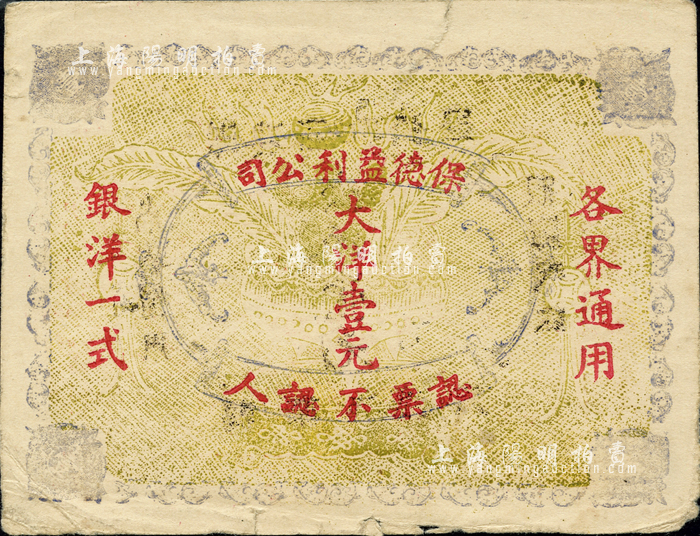 上海陽明拍賣
www.yangmingauction.com
保德益利公司
各界通用
大洋壹元
銀洋一式
認票不認人
上海陽明拍賣
www.yangmingauction.com
上海陽明拍賣
www.yangmingauction.com